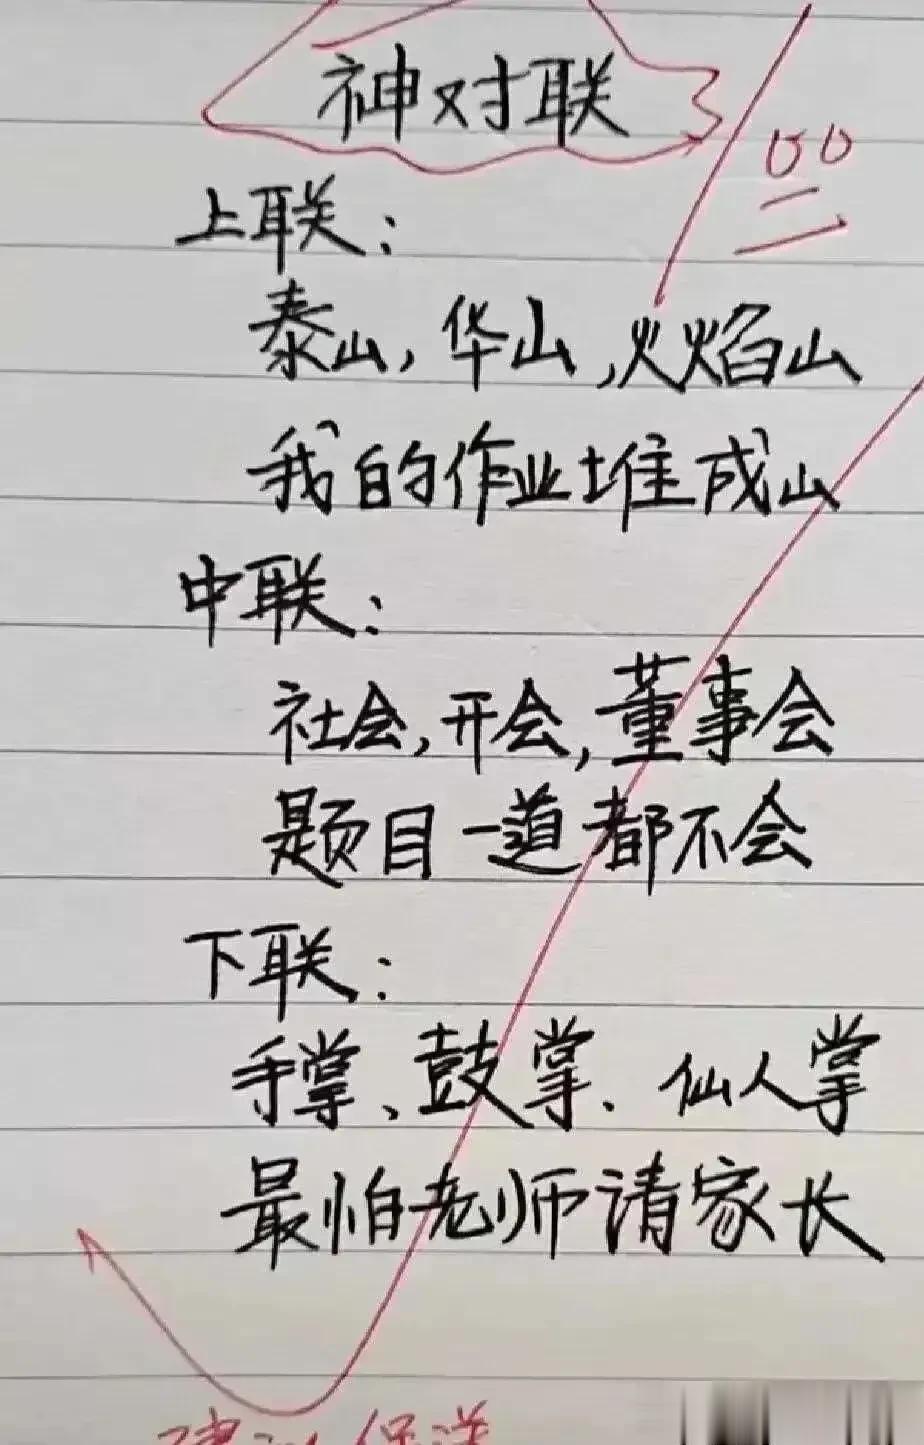 神对联
上联：
泰山，华山，火焰山
我的作业堆成山
中联：
社会，开会，董事会
题目一道都不会
下联：
手掌、鼓掌、仙人掌
最怕老师请家长
建议保送